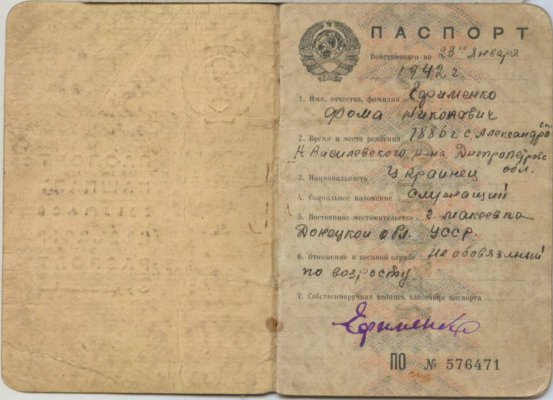 ПАСПОРТ
Действителен по 23го Января
1942 г.
1. Имя, отчество, фамилия Ефименко
Фома
2. Время и место рождения 1886 г. с. Александро
Василевского р-на Днепропетровс
обл.
3. Национальность Украинец
4. Социальное положение Служащий
5. Постоянное местожительство г. Макеевка
Донецкой обл. УССР.
6. Отношение к военной службе Необовязлный
по возросту
7. Собственноручная подпись владельца паспорта
Ефименко
ПО № 576471